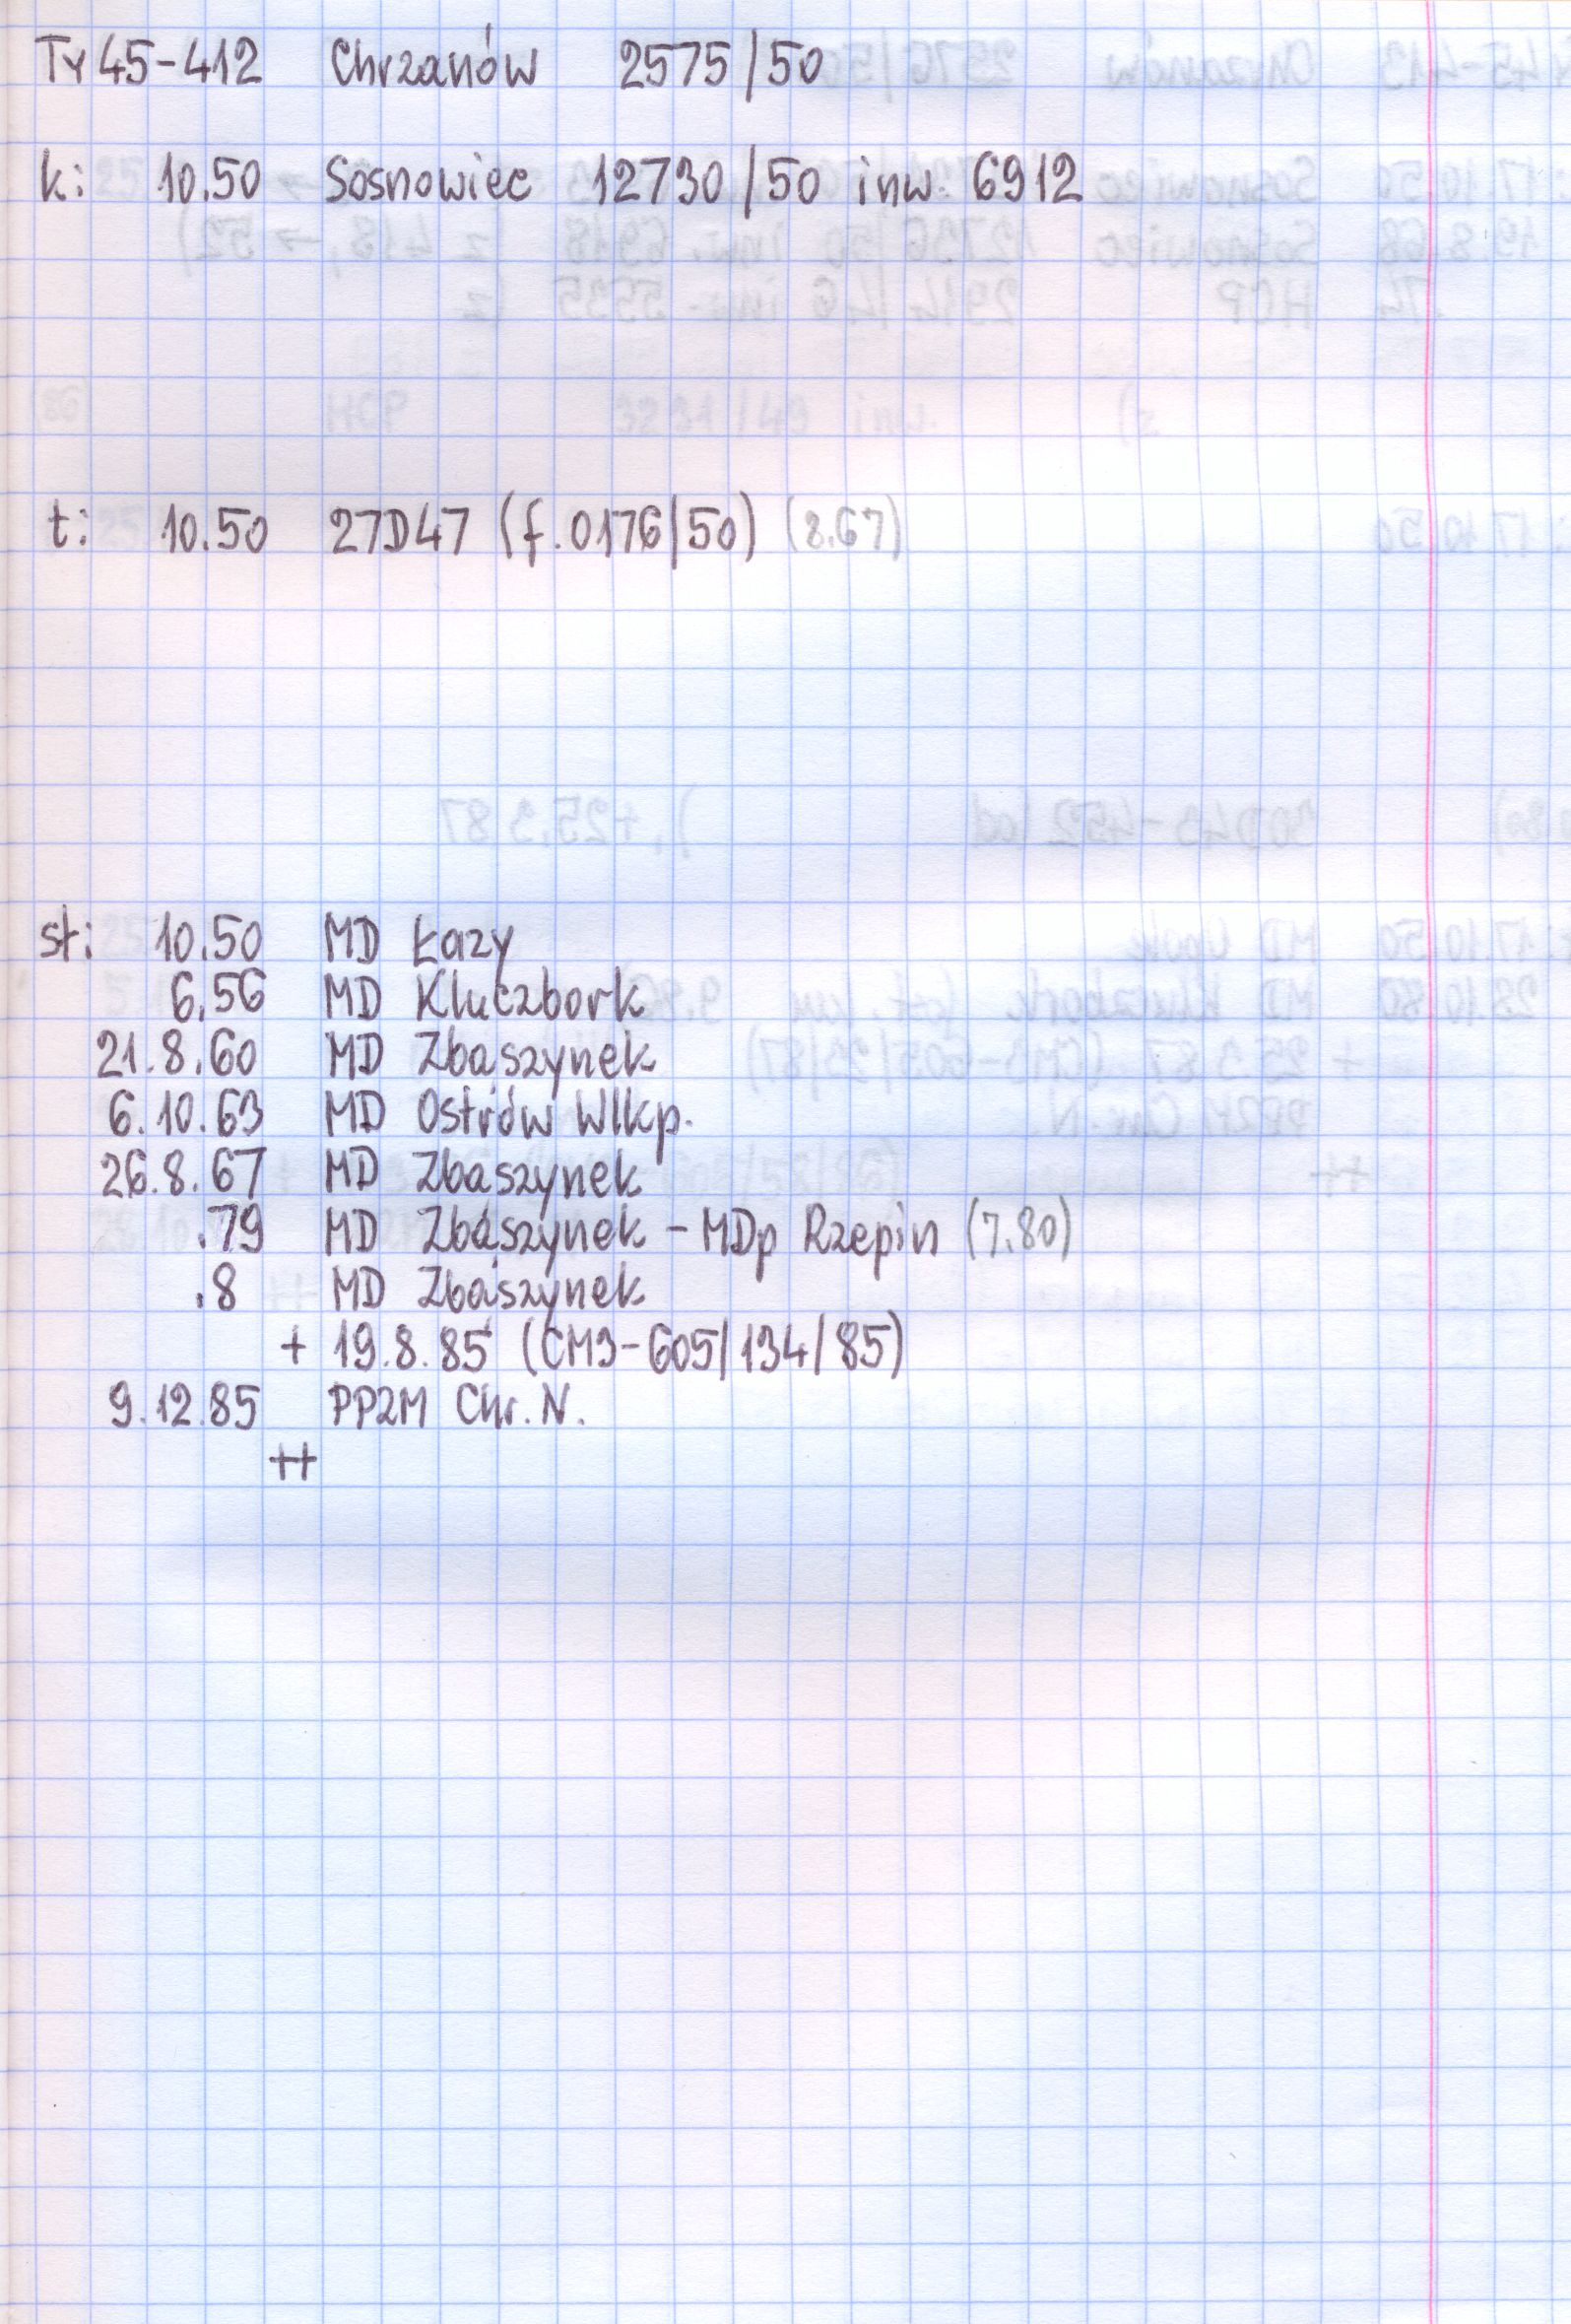 Ty45-412 Chrzanów 2575/50
k: 10.50 Sosnowiec 12730/50 inw. 6912
t: 10.50 27D47 (f.0176/50) (8.67)
st: 10.50 MD Łazy
6.56 MD Kluczbork
21.8.60 MD Zbąszynek
6.10.63 MD Ostrów Wlkp.
26.8.67 MD Zbąszynek
.79 MD Zbąszynek - MDp Rzepin (7.80)
.8 MD Zbąszynek
+ 19.8.85 (CM3-605/134/85)
9.12.85 PP2M Chr. N.
++